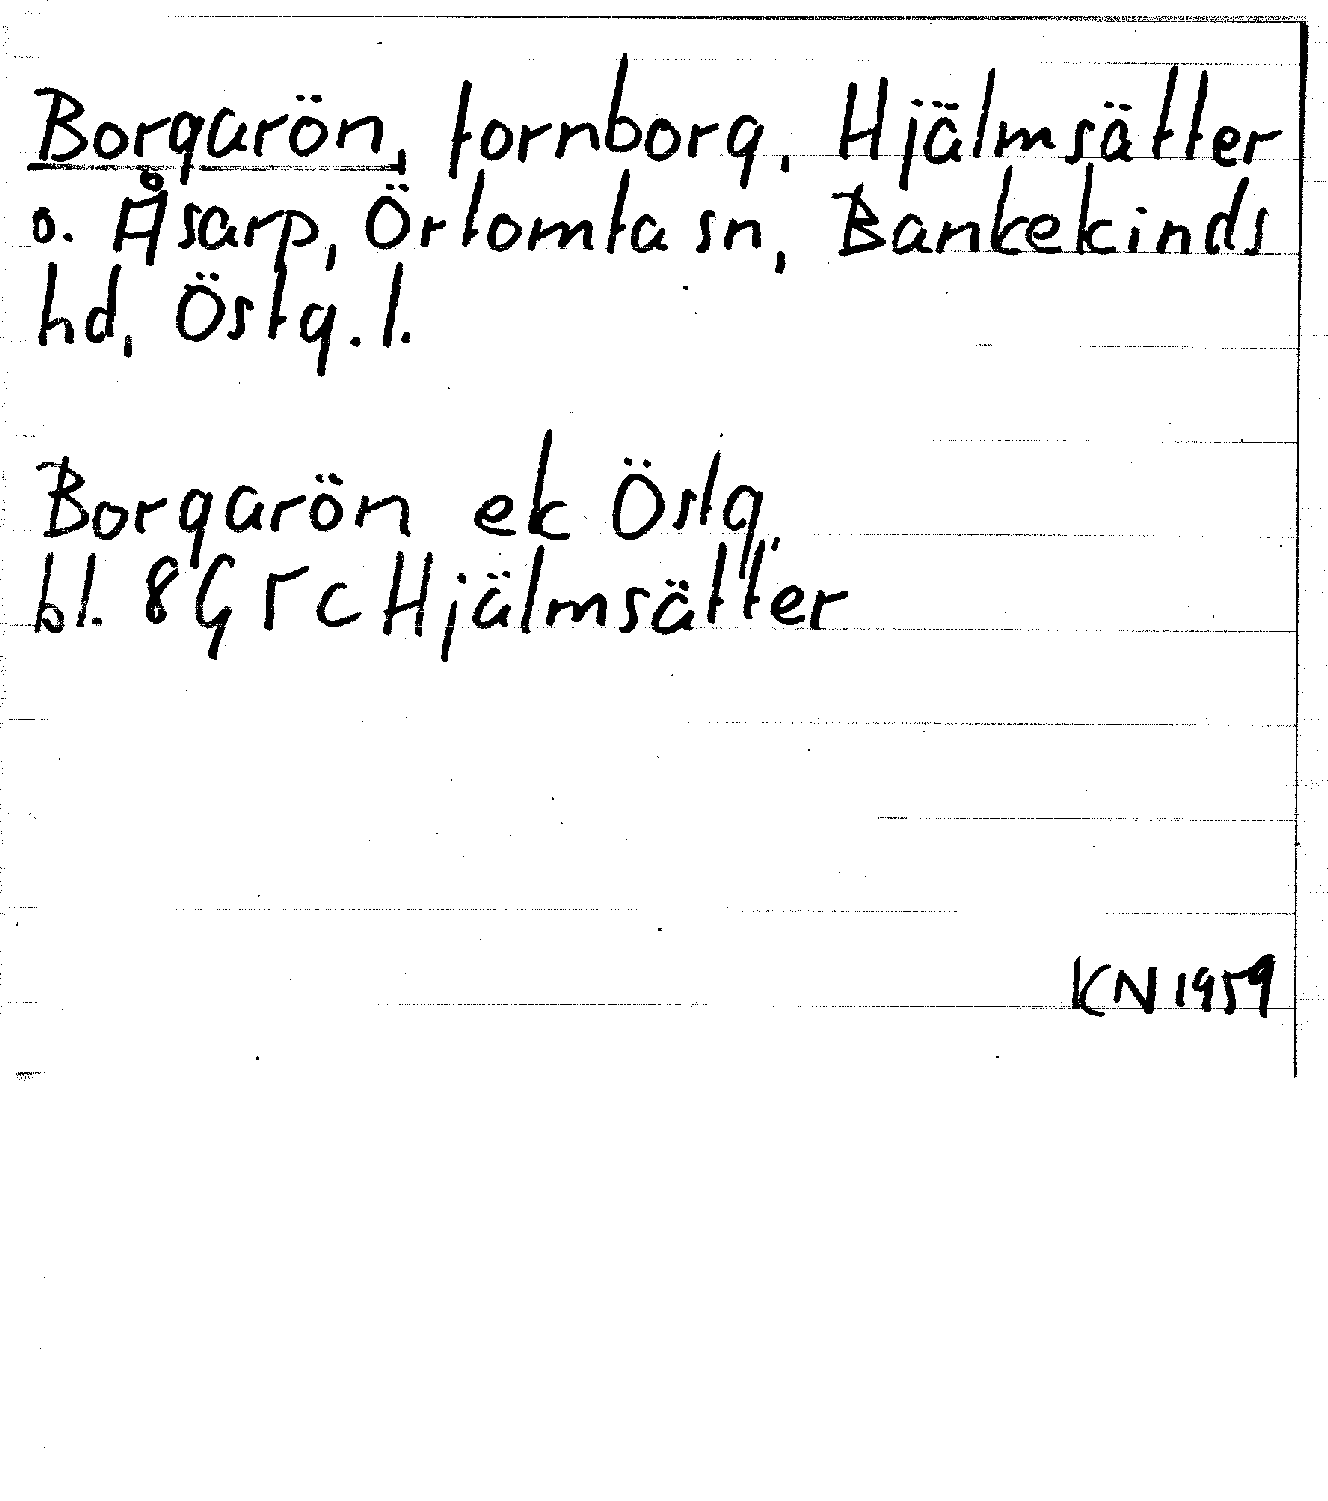 Borgarön, fornborg, Hjälmsätter
o. Åsarp, Örtomta sn, Bankekinds
hd, Östg. l.
Borgarön ek Östg.
bl. 8G 5 c Hjälmsätter
KN 1959